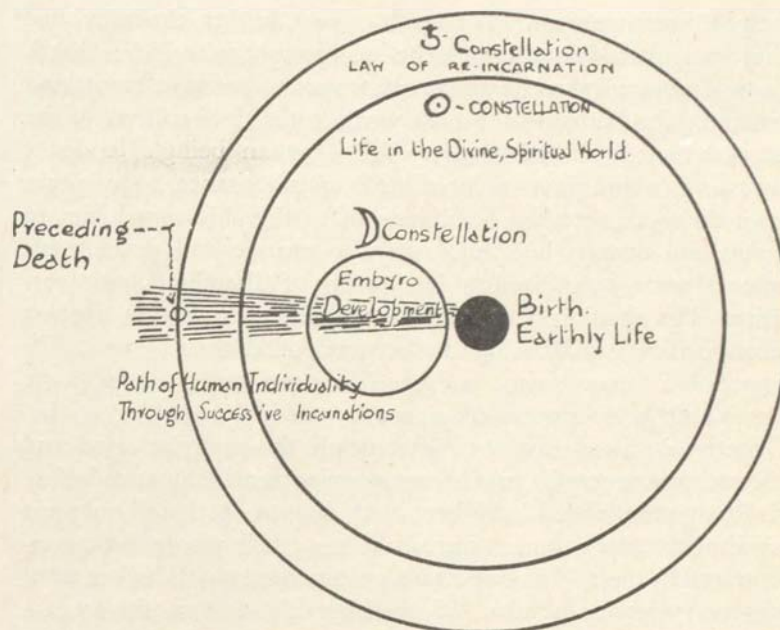 ♄-Constellation
LAW OF RE-INCARNATION
☉-CONSTELLATION
Life in the Divine, Spiritual World.
☽ Constellation
Preceding---
Death
Embyro
Development
Birth.
Earthly Life
Path of Human Individuality
Through Successive Incarnations